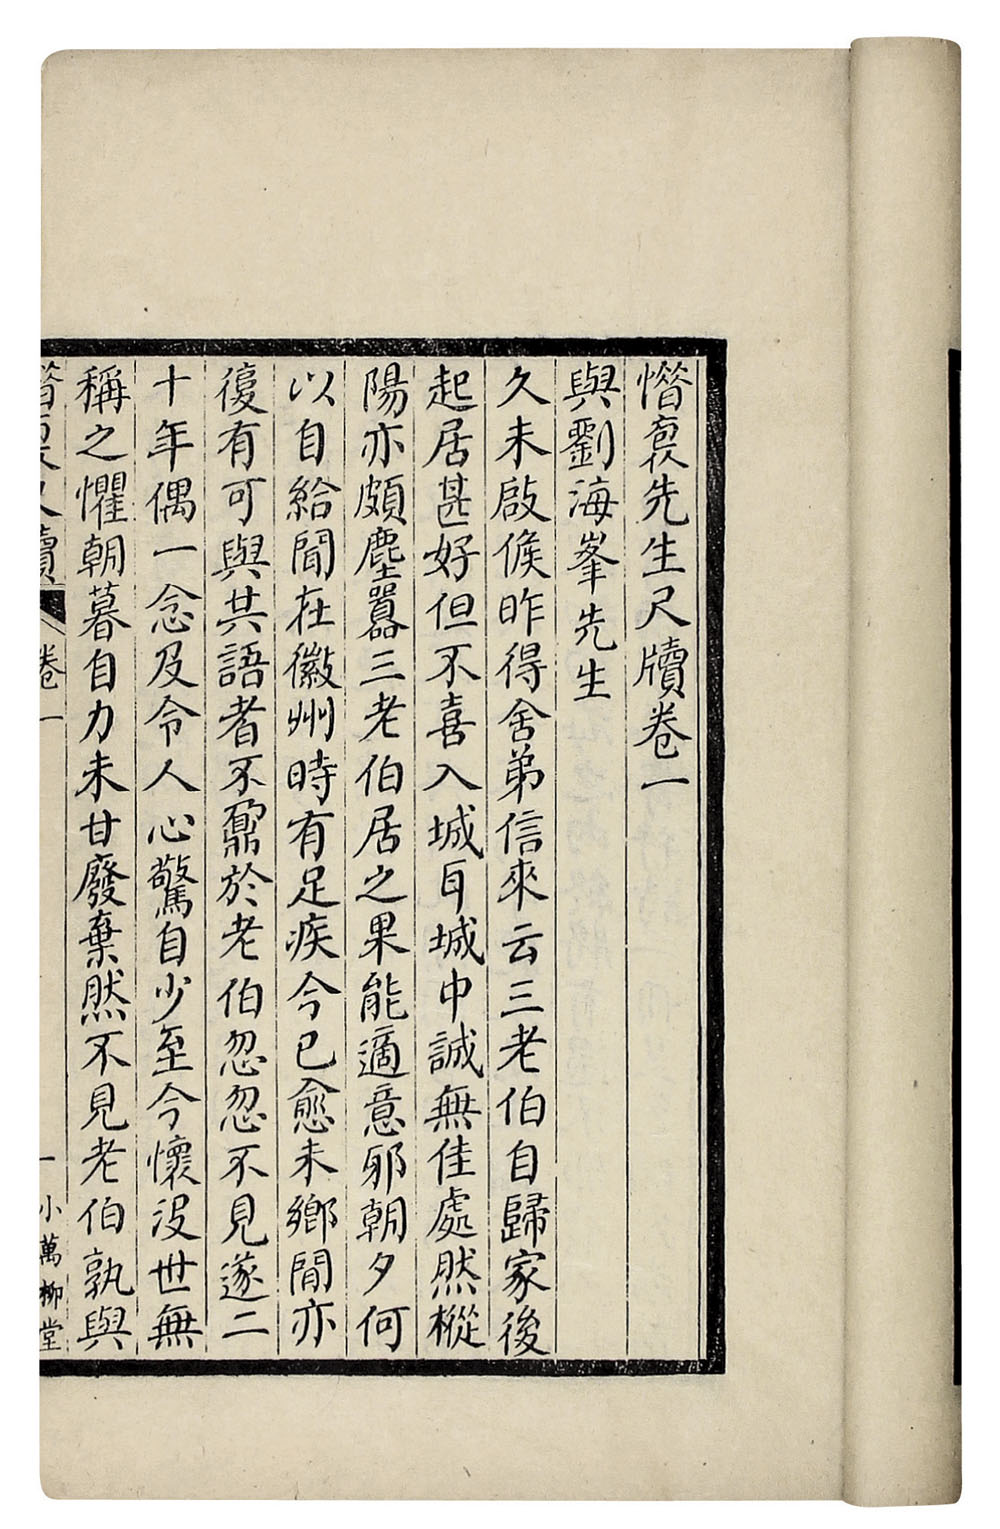 惜裒先生尺牘卷一
與劉海峯先生
久未啟候昨得舍弟信來云三老伯自歸家後
起居甚好但不喜入城耳城中誠無佳處然樅
陽亦頗塵囂三老伯居之果能適意邪朝夕何
以自給聞在徽州時有足疾今已愈未鄉間亦
復有可與共語者不鼐於老伯忽忽不見遂二
十年偶一念及令人心驚自少至今懷沒世無
稱之懼朝暮自力未甘廢棄然不見老伯孰與
尺牘 卷一 一 小萬柳堂